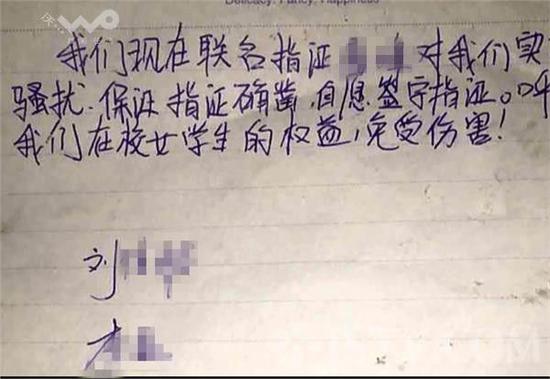 Delicacy, Fancy, Happiness
我们现在联名指证 对我们实
骚扰.保证指证确凿,自愿签字指证。呼
我们在校女学生的权益,免受伤害!
刘